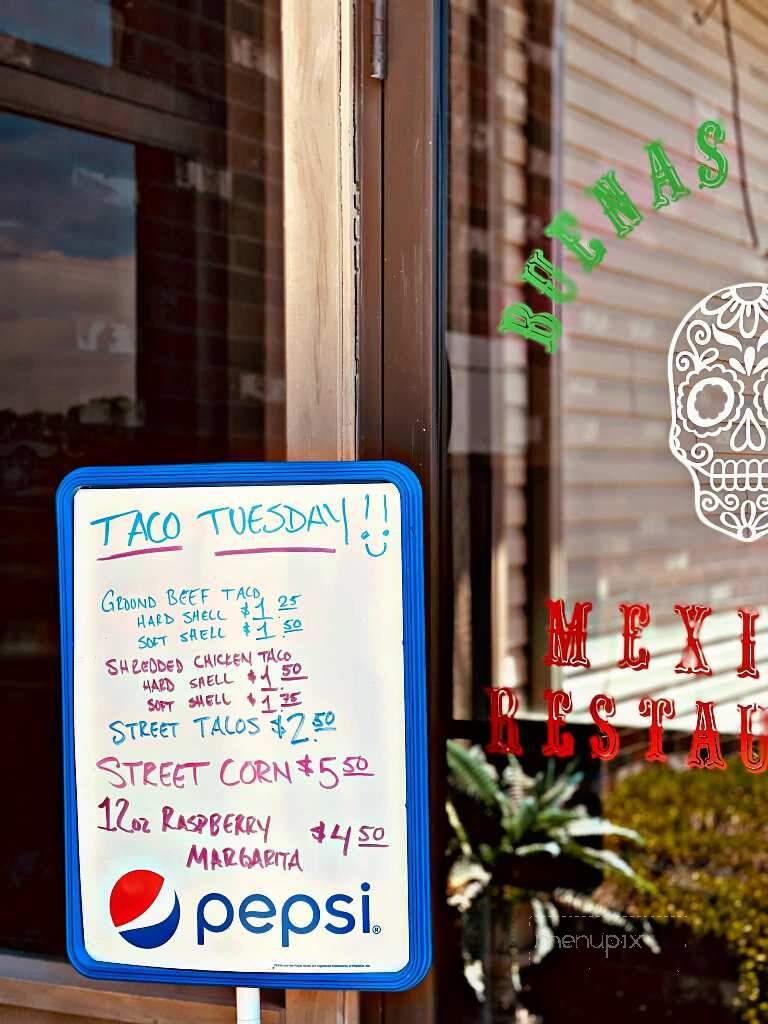 BUENAS
TACO TUESDAY!!
GROUND BEEF TACO
HARD SHELL $1.25
SOFT SHELL $1.50
SHREDDED CHICKEN TACO
HARD SHELL $1.50
SOFT SHELL $1.75
STREET TACOS $2.50
STREET CORN $5.50
12oz RASPBERRY $4.50
MARGARITA
pepsi®
MEXI
RESTAU
menupix